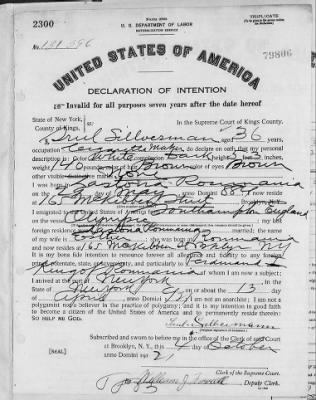 2300
FORM 2203
U. S. DEPARTMENT OF LABOR
NATURALIZATION SERVICE
TRIPLICATE
No. 131396
79806
UNITED STATES OF AMERICA
DECLARATION OF INTENTION
Invalid for all purposes seven years after the date hereof
State of New York,
County of Kings, ss: In the Supreme Court of Kings County.
I, Silverman aged 36 years,
occupation Maker, do declare on oath that my personal
description is: Color White complexion Dark height 5 feet 3 inches,
weight 170 pounds, color of hair Brown color of eyes Brown
other visible distinctive marks
I was born in Roumania
on the day of May anno Domini 1885; I now reside
at 165 McKibbin Street Brooklyn, N.Y.
I emigrated to the United States of America from Southampton England
on the vessel Olympic; my last
foreign residence was Roumania
I am married; the name of my
wife is; she was born in Roumania
and now resides at 165 McKibbin St Brooklyn NY
It is my bona fide intention to renounce forever all allegiance and fidelity to any foreign
prince, potentate, state, or sovereignty, and particularly to Ferdinand I
King of Roumania of whom I am now a subject;
I arrived at the port of New York
State of New York on or about the 13 day
of April anno Domini 1921; I am not an anarchist; I am not a
polygamist nor a believer in the practice of polygamy; and it is my intention in good faith
to become a citizen of the United States of America and to permanently reside therein:
SO HELP ME GOD.
Silbermann
Subscribed and sworn to before me in the office of the Clerk of said Court
at Brooklyn, N. Y., this 4 day of October
[SEAL] anno Domini 1921
Clerk of the Supreme Court.
By William J. Deputy Clerk.